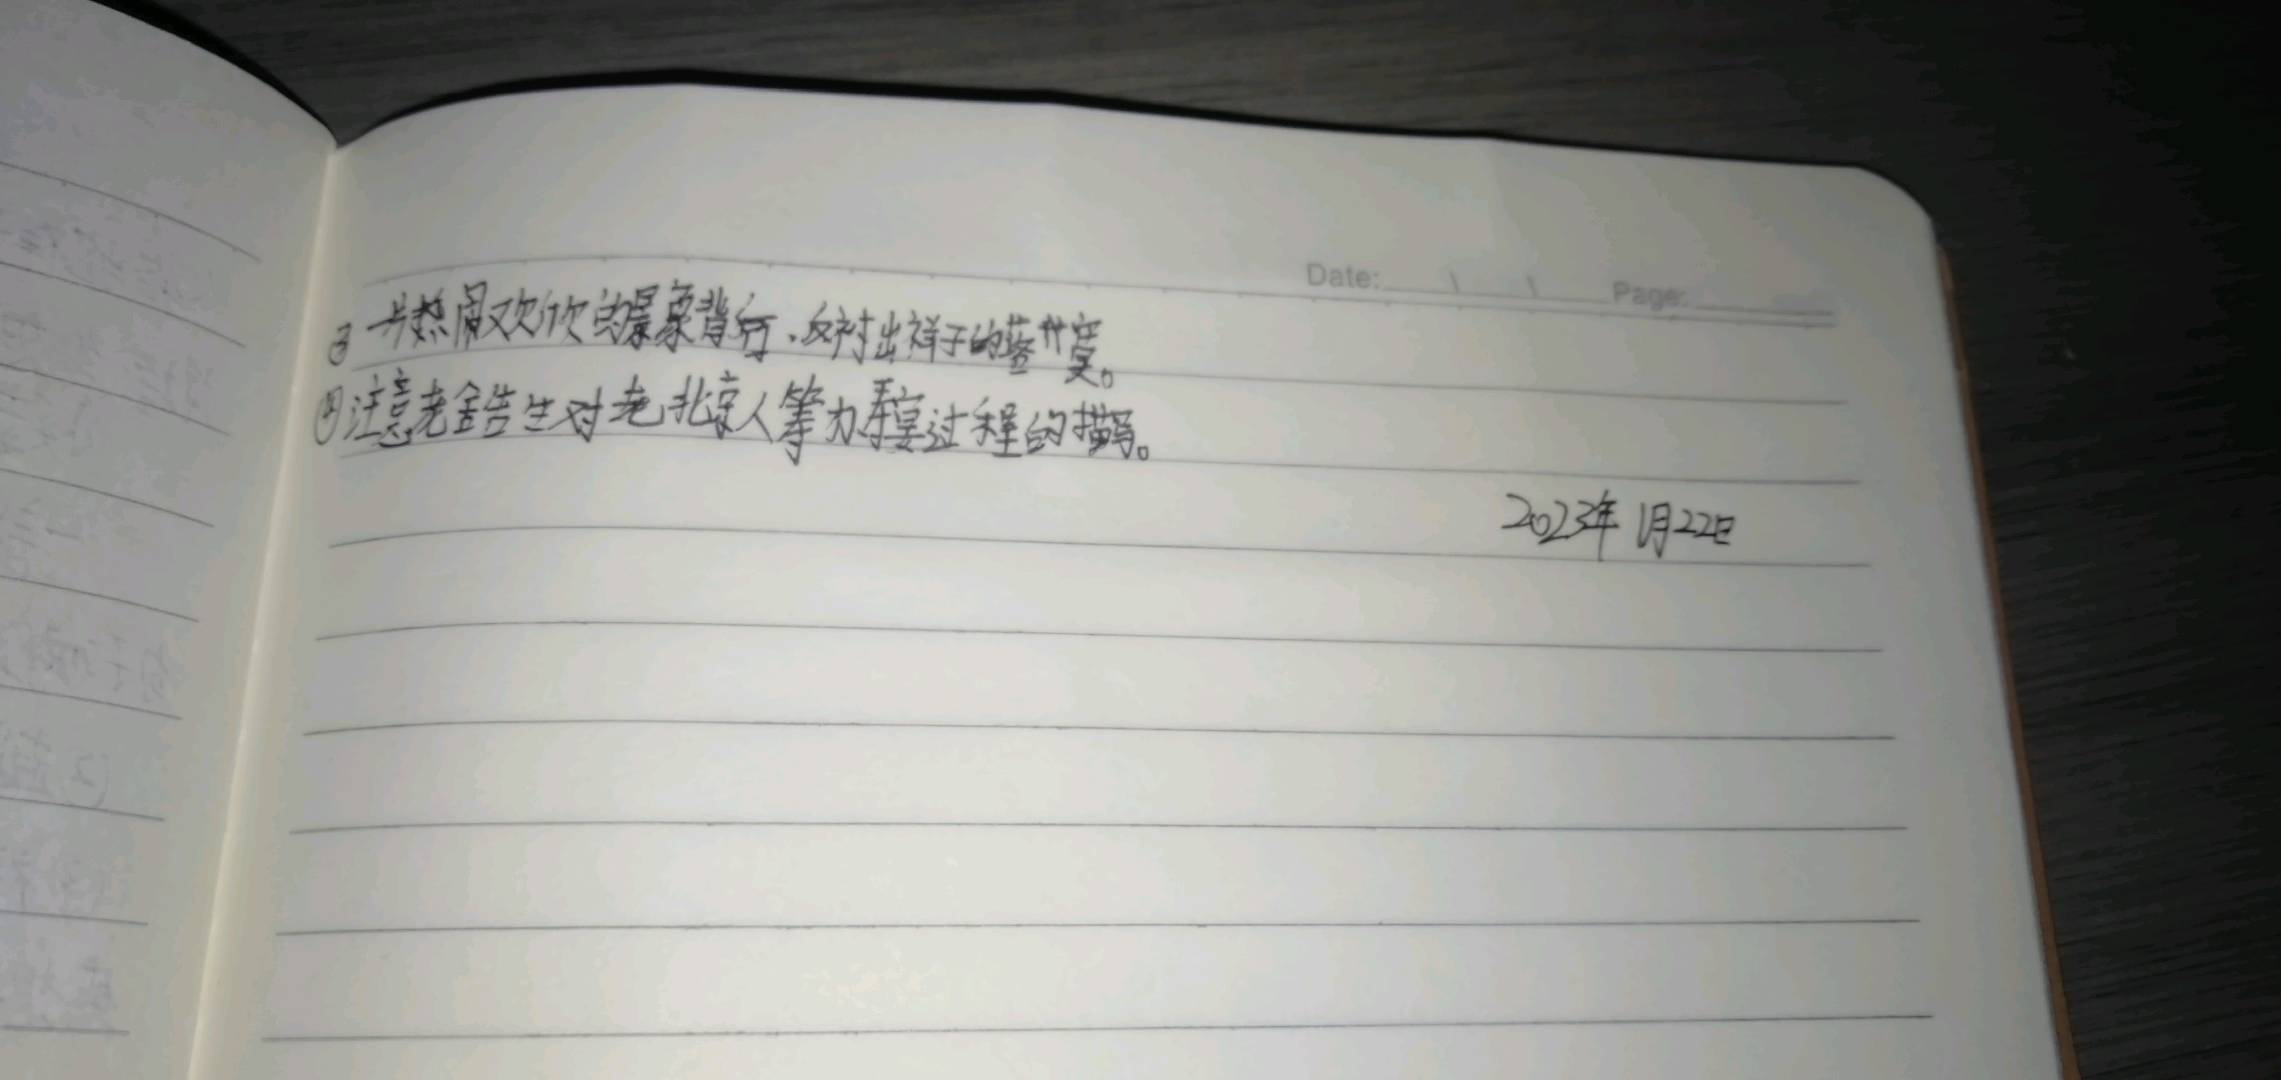 Date: Page:
③ 一片热闹欢欣的景象背后,反衬出祥子的落寞。
④注意老舍先生对老北京人筹办寿宴过程的描写。
2023年1月22日